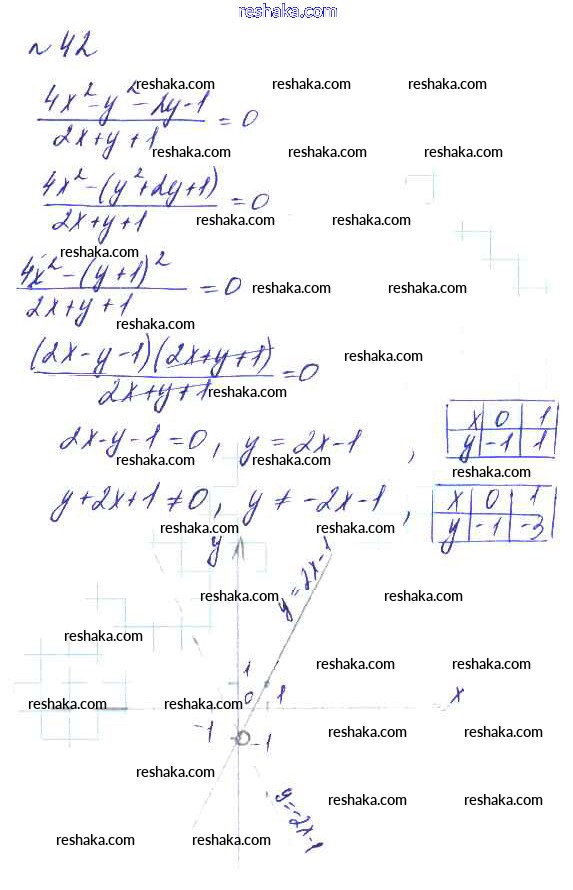 reshaka.com
№42
reshaka.com reshaka.com reshaka.com
4x²-y²-2y-1 / 2x+y+1 = 0
reshaka.com reshaka.com reshaka.com
4x²-(y²+2y+1) / 2x+y+1 = 0
reshaka.com reshaka.com
reshaka.com
4x²-(y+1)² / 2x+y+1 = 0
reshaka.com reshaka.com
reshaka.com
(2x-y-1)(2x+y+1) / 2x+y+1 = 0
reshaka.com
reshaka.com
2x-y-1=0, y=2x-1,
x 0 1
y -1 1
reshaka.com reshaka.com
reshaka.com
y+2x+1≠0, y≠-2x-1,
x 0 1
y -1 -3
reshaka.com reshaka.com
y
y=2x-1
reshaka.com reshaka.com
reshaka.com
1
reshaka.com reshaka.com
0 1 x
reshaka.com reshaka.com reshaka.com
-1
reshaka.com reshaka.com
-1
reshaka.com
y=-2x-1
reshaka.com reshaka.com
reshaka.com reshaka.com